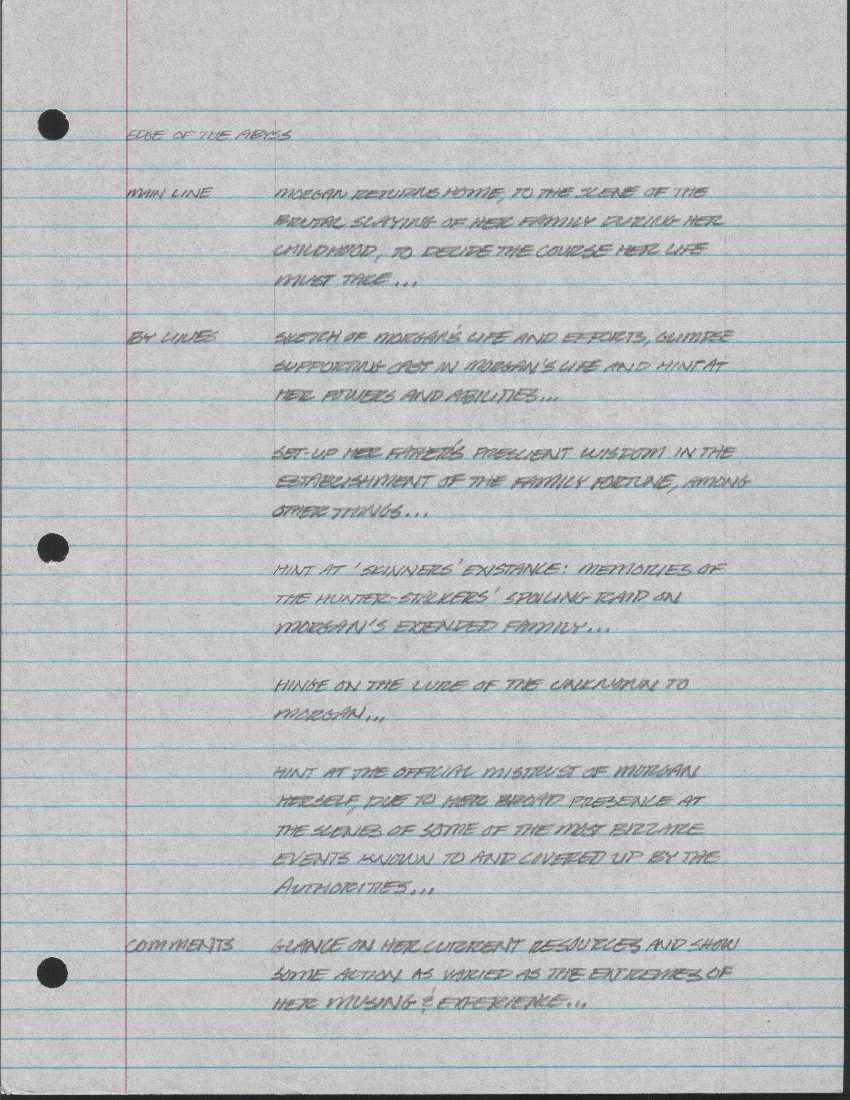 EDGE OF THE ABYSS
MAIN LINE MORGAN RETURNS HOME, TO THE SCENE OF THE
BRUTAL SLAYING OF HER FAMILY DURING HER
CHILDHOOD, TO DECIDE THE COURSE HER LIFE
MUST TAKE...
BY LINES SKETCH OF MORGAN'S LIFE AND EFFORTS, GLIMPSE
SUPPORTING CAST IN MORGAN'S LIFE AND HINT AT
HER POWERS AND ABILITIES...
SET-UP HER FATHER'S PRESCIENT WISDOM IN THE
ESTABLISHMENT OF THE FAMILY FORTUNE, AMONG
OTHER THINGS...
HINT AT 'SKINNERS' EXISTANCE: MEMORIES OF
THE HUNTER-STALKERS' SPOILING RAID ON
MORGAN'S EXTENDED FAMILY...
HINGE ON THE LURE OF THE UNKNOWN TO
MORGAN...
HINT AT THE OFFICIAL MISTRUST OF MORGAN
HERSELF, DUE TO HER BROAD PRESENCE AT
THE SCENES OF SOME OF THE MOST BIZZARE
EVENTS KNOWN TO AND COVERED UP BY THE
AUTHORITIES...
COMMENTS GLANCE ON HER CURRENT RESOURCES AND SHOW
SOME ACTION AS VARIED AS THE EXTREMES OF
HER MUSING & EXPERIENCE...